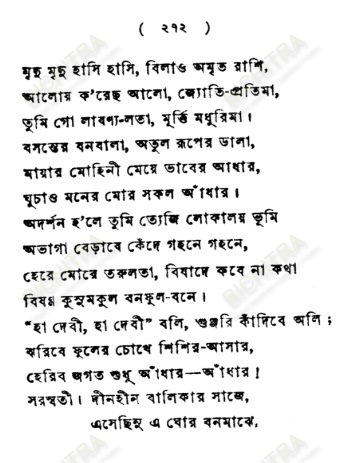 ( ২৭২ )
মৃদু মৃদু হাসি হাসি, বিলাও অমৃত রাশি,
আলোয় ক'রেছ আলো, জ্যোতি-প্রতিমা,
তুমি গো লাবণ্য-লতা, মূর্ত্তি মধুরিমা।
বসন্তের বনবালা, অতুল রূপের ডালা,
মায়ার মোহিনী মেয়ে ভাবের আধার,
ঘুচাও মনের মোর সকল আঁধার।
অদর্শন হ'লে তুমি ত্যেজি লোকালয় ভূমি
অভাগা বেড়াবে কেঁদে গহনে গহনে,
হেরে মোরে তরুলতা, বিষাদে কবে না কথা
বিষণ্ণ কুসুমকুল বনফুল-বনে।
"হা দেবী, হা দেবী" বলি, গুঞ্জরি কাঁদিবে অলি ;
ঝরিবে ফুলের চোখে শিশির-আসার,
হেরিব জগত শুধু আঁধার—আঁধার !
সরস্বতী। দীনহীন বালিকার সাজে,
এসেছিনু এ ঘোর বনমাঝে,